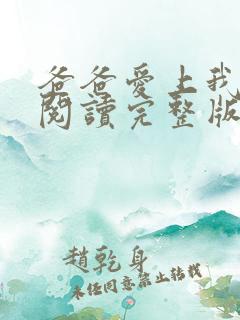 爸爸愛上我
閱讀完整版
趙乾身
未經同意禁止轉載